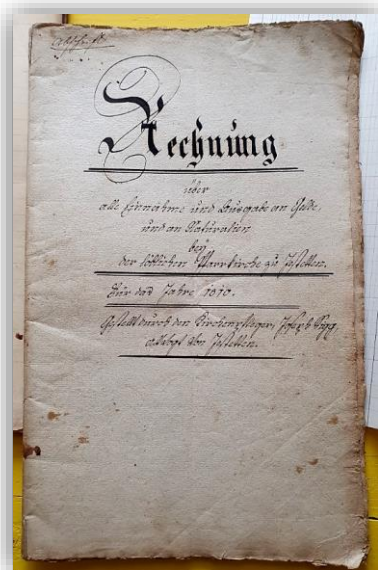 Abschrift
Rechnung
über
alle Einnahme und Ausgabe an Geld,
und an Naturalien
bey
der löblichen Pfarrkirche zu Jestetten.
Für das Jahr 1810.
Gestellt durch den Kirchenpfleger, Joseph
von Jestetten.